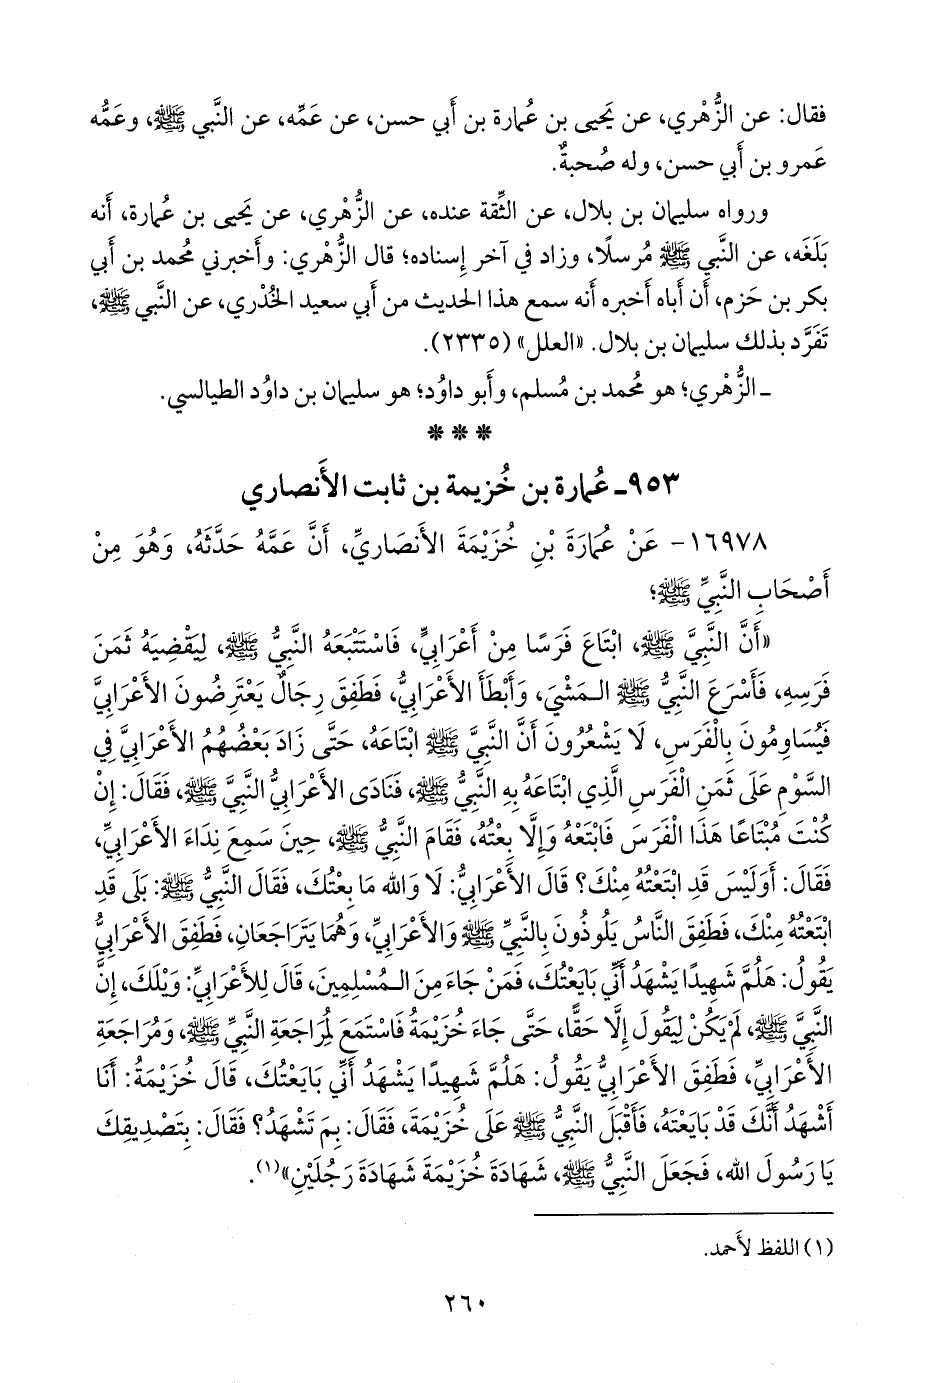 فقال: عن الزُّهْري، عن يَحيى بن عُمارة بن أَبي حسن، عن عَمِّه، عن النَّبي ﷺ، وعَمُّه
عَمرو بن أَبي حسن، وله صُحبةٌ.
ورواه سليمان بن بلال، عن الثِّقة عنده، عن الزُّهْري، عن يَحيى بن عُمارة، أَنه
بَلَغَه، عن النَّبي ﷺ مُرسلًا، وزاد في آخر إِسناده؛ قال الزُّهْري: وأَخبرني محمد بن أَبي
بكر بن حَزم، أَن أَباه أَخبره أَنه سمع هذا الحديث من أَبي سعيد الخُدْري، عن النَّبي ﷺ،
تَفَرَّد بذلك سليمان بن بلال. «العلل» (٢٣٣٥).
ـ الزُّهْري؛ هو محمد بن مُسلم، وأَبو داوُد؛ هو سليمان بن داوُد الطيالسي.
* * *
٩٥٣ـ عُمارة بن خُزيمة بن ثابت الأَنصاري
١٦٩٧٨- عَنْ عُمَارَةَ بْنِ خُزَيْمَةَ الأَنصَارِيِّ، أَنَّ عَمَّهُ حَدَّثَهُ، وَهُوَ مِنْ
أَصْحَابِ النَّبِيِّ ﷺ؛
«أَنَّ النَّبِيَّ ﷺ، ابْتَاعَ فَرَسًا مِنْ أَعْرَابِيٍّ، فَاسْتَتْبَعَهُ النَّبِيُّ ﷺ، لِيَقْضِيَهُ ثَمَنَ
فَرَسِهِ، فَأَسْرَعَ النَّبِيُّ ﷺ الـمَشْيَ، وَأَبْطَأَ الأَعْرَابِيُّ، فَطَفِقَ رِجَالٌ يَعْتَرِضُونَ الأَعْرَابِيَّ
فَيُسَاوِمُونَ بِالْفَرَسِ، لَا يَشْعُرُونَ أَنَّ النَّبِيَّ ﷺ ابْتَاعَهُ، حَتَّى زَادَ بَعْضُهُمُ الأَعْرَابِيَّ فِي
السَّوْمِ عَلَى ثَمَنِ الْفَرَسِ الَّذِي ابْتَاعَهُ بِهِ النَّبِيُّ ﷺ، فَنَادَى الأَعْرَابِيُّ النَّبِيَّ ﷺ، فَقَالَ: إِنْ
كُنْتَ مُبْتَاعًا هَذَا الْفَرَسَ فَابْتَعْهُ وَإِلَّا بِعْتُهُ، فَقَامَ النَّبِيُّ ﷺ، حِينَ سَمِعَ نِدَاءَ الأَعْرَابِيِّ،
فَقَالَ: أَوَلَيْسَ قَدِ ابْتَعْتُهُ مِنْكَ؟ قَالَ الأَعْرَابِيُّ: لَا وَالله مَا بِعْتُكَ، فَقَالَ النَّبِيُّ ﷺ: بَلَى قَدِ
ابْتَعْتُهُ مِنْكَ، فَطَفِقَ النَّاسُ يَلُوذُونَ بِالنَّبِيِّ ﷺ وَالأَعْرَابِيِّ، وَهُمَا يَتَرَاجَعَانِ، فَطَفِقَ الأَعْرَابِيُّ
يَقُولُ: هَلُمَّ شَهِيدًا يَشْهَدُ أَنِّي بَايَعْتُكَ، فَمَنْ جَاءَ مِنَ الـمُسْلِمِينَ، قَالَ لِلأَعْرَابِيِّ: وَيْلَكَ، إِنَّ
النَّبِيَّ ﷺ، لَمْ يَكُنْ لِيَقُولَ إِلَّا حَقًّا، حَتَّى جَاءَ خُزَيْمَةُ فَاسْتَمَعَ لِمُرَاجَعَةِ النَّبِيِّ ﷺ، وَمُرَاجَعَةِ
الأَعْرَابِيِّ، فَطَفِقَ الأَعْرَابِيُّ يَقُولُ: هَلُمَّ شَهِيدًا يَشْهَدُ أَنِّي بَايَعْتُكَ، قَالَ خُزَيْمَةُ: أَنَا
أَشْهَدُ أَنَّكَ قَدْ بَايَعْتَهُ، فَأَقْبَلَ النَّبِيُّ ﷺ عَلَى خُزَيْمَةَ، فَقَالَ: بِمَ تَشْهَدُ؟ فَقَالَ: بِتَصْدِيقِكَ
يَا رَسُولَ الله، فَجَعَلَ النَّبِيُّ ﷺ، شَهَادَةَ خُزَيْمَةَ شَهَادَةَ رَجُلَيْنِ»(١).
(١) اللفظ لأَحمد.
٢٦٠